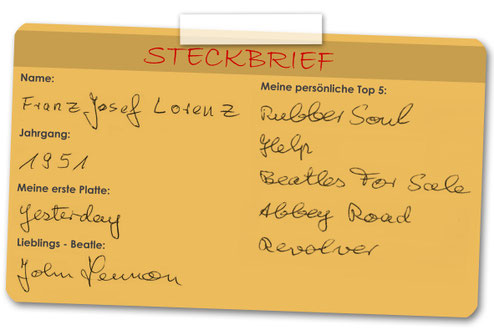 STECKBRIEF
Name:
Franz Josef Lorenz
Jahrgang:
1951
Meine erste Platte:
Yesterday
Lieblings - Beatle:
John Lennon
Meine persönliche Top 5:
Rubber Soul
Help
Beatles For Sale
Abbey Road
Revolver